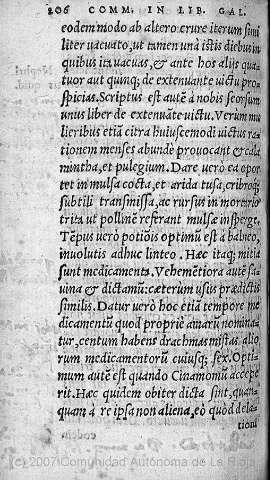 206 COMM. IN LIB. GAL.
eodem modo ab altero crure iterum simi
liter vacuato, ut tamen unà istis diebus in
quibus ita vacuas, & ante hos aliis quatuor
aut quinq; de extenuante victu pro
spicias. Scriptus est autē à nobis seorsum
unus liber de extenuāte victu. Verum mu
lieribus etiā citra huiuscemodi victus ra
tionem menses abundè provocant & cala
mintha, et pulegium. Dare verò ea opor
tet in mulsa cocta, et arida tusa, cribroq;
subtili transmissa, ac rursus in mortario
trita ut pollinē referant mulsæ insperge.
Tēpus verò potiōis optimū est à balneo,
involutis adhuc linteo. Hæc itaq; mitia
sunt medicamenta. Vehemētiora autē sa
uina & dictamū: cæterum usus prædictis
similis. Datur verò hoc etiā tempore me
dicamentū quod propriè amarū nomina
tur, centum habens drachmas mistas alio
rum medicamentorū cuiusq; sex. Opti-
mum autē est quando Cinamomū accepe
rit. Hæc quidem obiter dicta sint, quan-
quam à re ipsa non aliena, eò quòd dela-
tioni
(c) 2007 Comunidad Autónoma de La Rioja